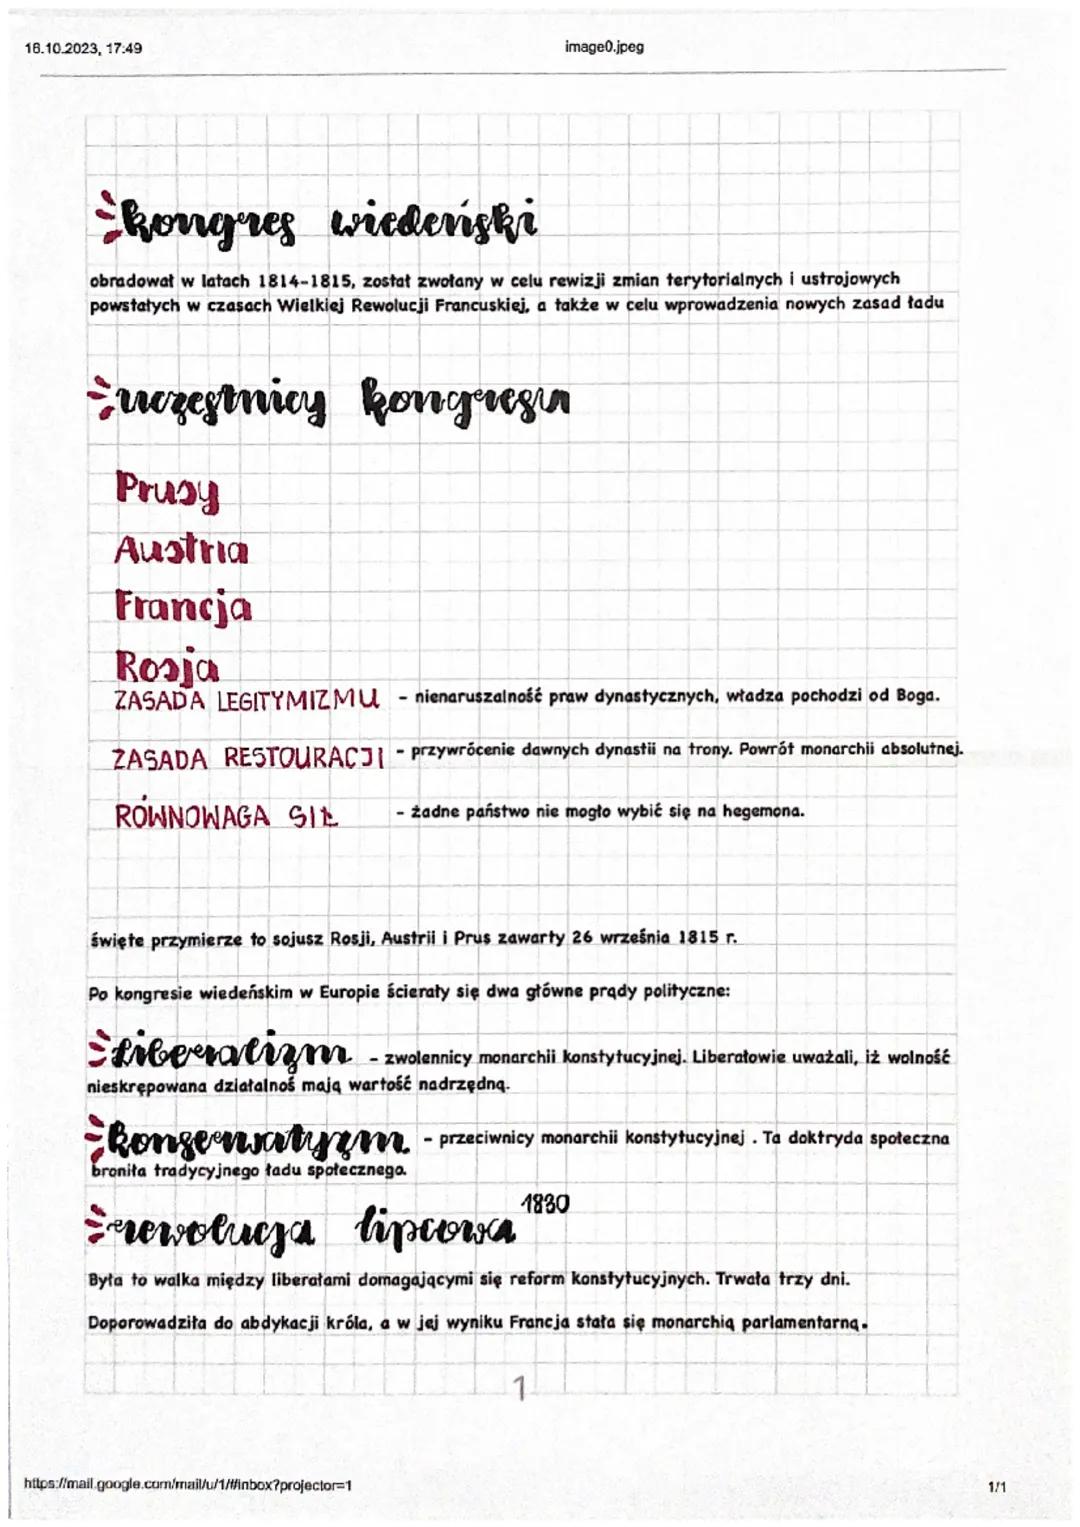 16.10.2023, 17:49
image0.jpeg
kongres wiedeński
obradował w latach 1814-1815, został zwołany w celu rewizji zmian terytorialnych i ustrojowych
powstałych w czasach Wielkiej Rewolucji Francuskiej, a także w celu wprowadzenia nowych zasad ładu
uczestnicy kongresu
Prusy
Austria
Francja
Rosja
ZASADA LEGITYMIZMU - nienaruszalność praw dynastycznych, władza pochodzi od Boga.
ZASADA RESTOURACJI - przywrócenie dawnych dynastii na trony. Powrót monarchii absolutnej.
RÓWNOWAGA SIŁ - żadne państwo nie mogło wybić się na hegemona.
święte przymierze to sojusz Rosji, Austrii i Prus zawarty 26 września 1815 r.
Po kongresie wiedeńskim w Europie ścierały się dwa główne prądy polityczne:
Liberalizm - zwolennicy monarchii konstytucyjnej. Liberałowie uważali, iż wolność
nieskrępowana działalnoś mają wartość nadrzędną.
konserwatyzm - przeciwnicy monarchii konstytucyjnej . Ta doktryda społeczna
broniła tradycyjnego ładu społecznego.
rewolucja lipcowa 1830
Była to walka między liberałami domagającymi się reform konstytucyjnych. Trwała trzy dni.
Doporowadziła do abdykacji króla, a w jej wyniku Francja stała się monarchią parlamentarną.
1
https://mail.google.com/mail/u/1/#inbox?projector=1
1/1